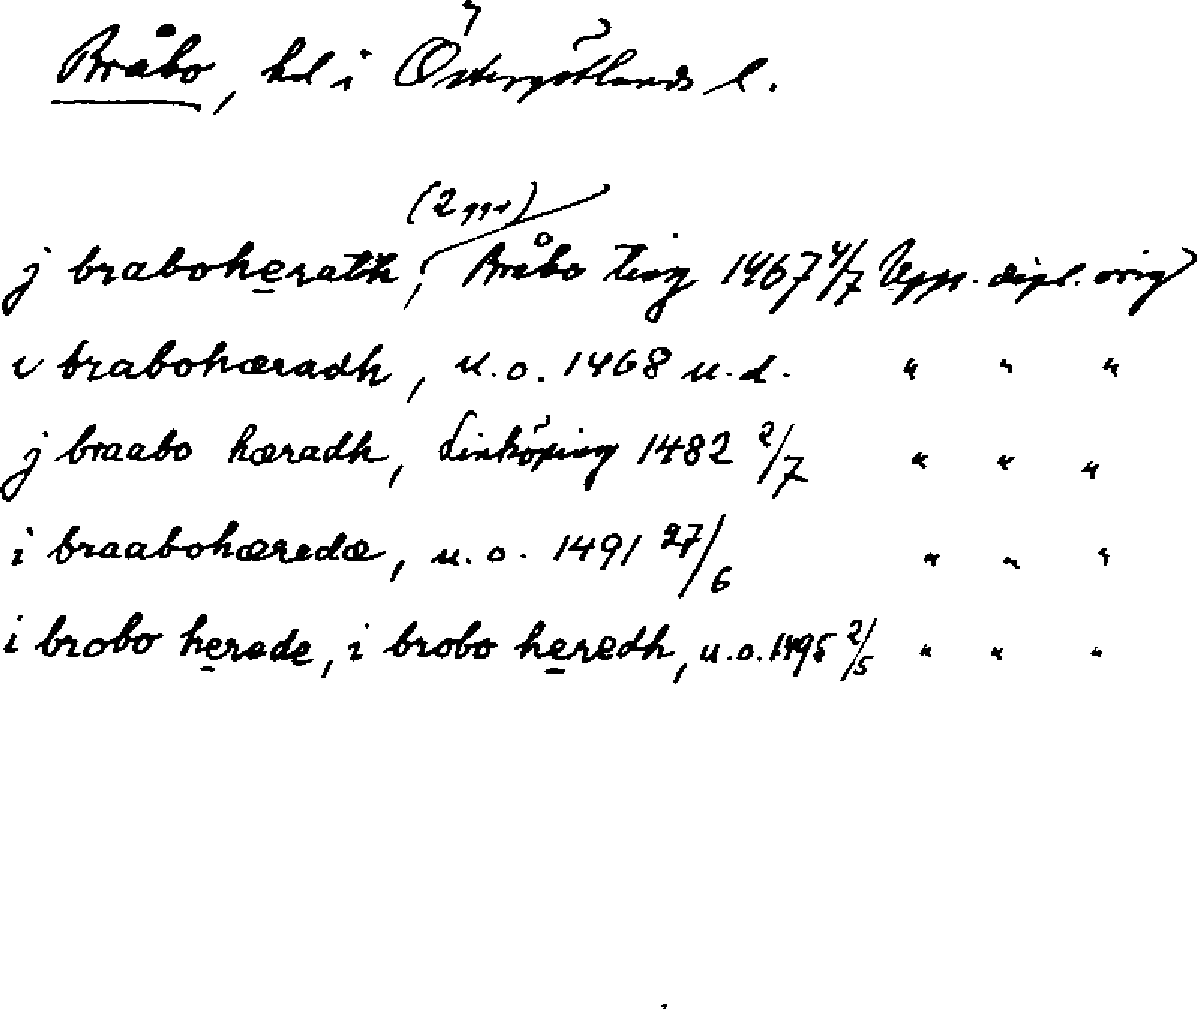 Bråbo, hd i Östergötlands l.
(2 ggr)
j braboherath, Bråbo ting 1467 4/7 Upps. dipl. orig
i brabohæradh, u.o. 1468 u.d. " " "
j braabo hæradh, Linköping 1482 2/7 " " "
i braabohæredæ, u.o. 1491 27/6 " " "
i brobo herade, i brobo heredh, u.o. 1495 2/5 " " "